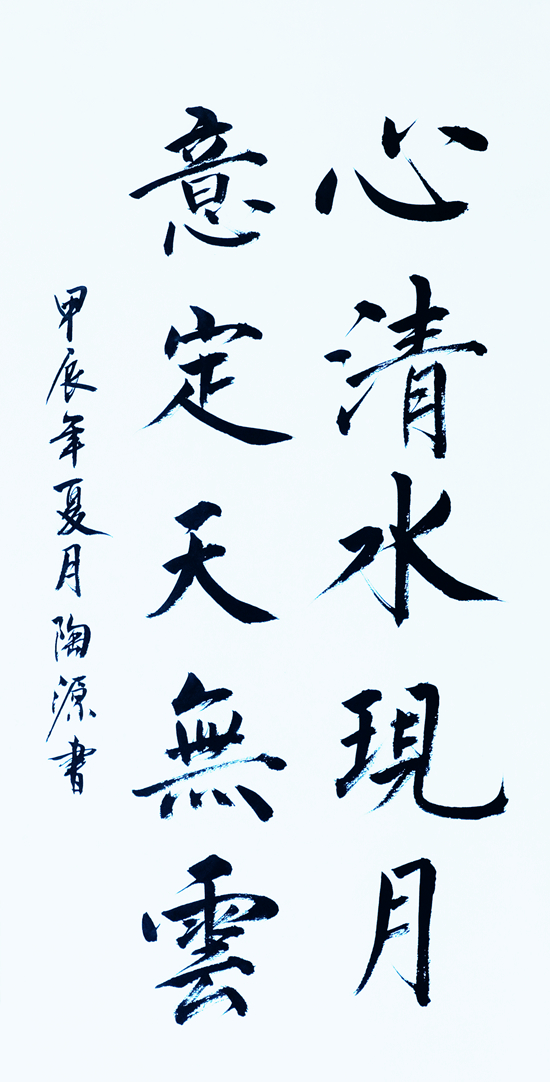 心清水現月
意定天無雲
甲辰年夏月陶源書